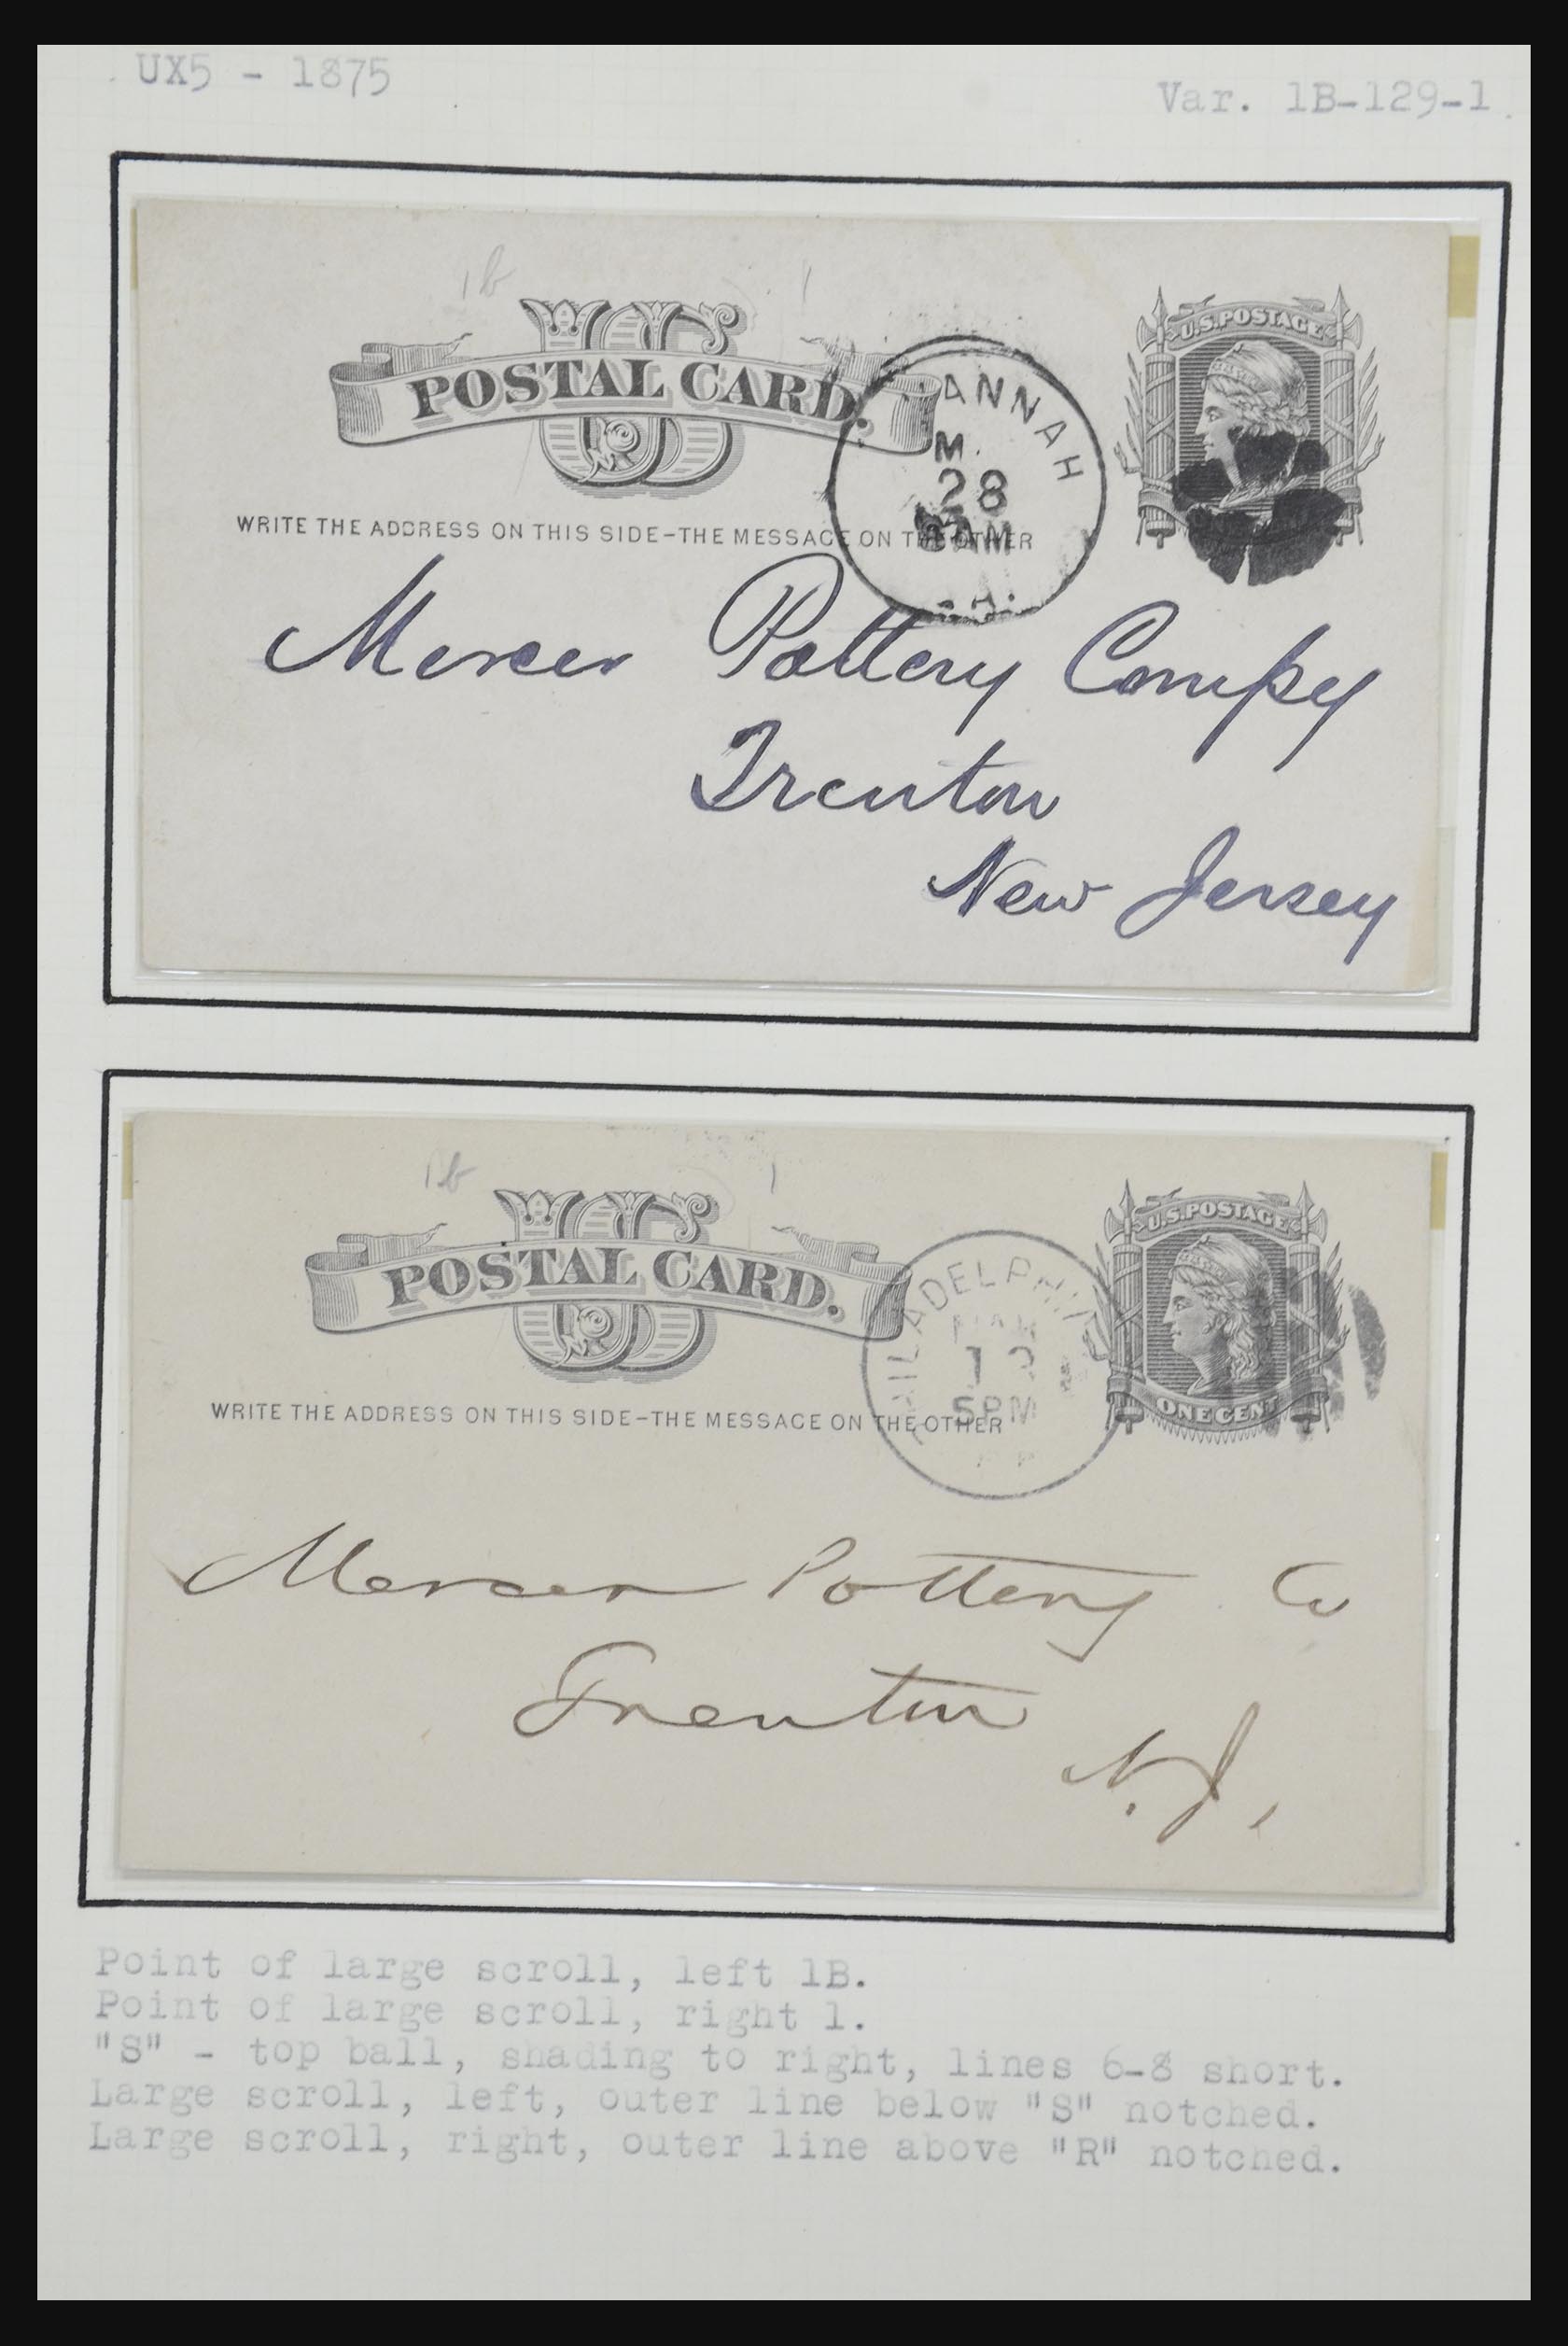 UX5 - 1875
Var. 1B-129-1
1b 1
US
POSTAL CARD.
U.S. POSTAGE
WRITE THE ADDRESS ON THIS SIDE-THE MESSAGE ON THE OTHER
ANNAH
M.
28
AM
A.
Mercer Pottery Compy
Trenton
New Jersey
1b 1
US
POSTAL CARD.
U.S. POSTAGE
ONE CENT
WRITE THE ADDRESS ON THIS SIDE-THE MESSAGE ON THE OTHER
PHILADELPHIA
MAR
5PM
Mercer Pottery Co
Trenton
N.J.
Point of large scroll, left 1B.
Point of large scroll, right 1.
"S" - top ball, shading to right, lines 6-8 short.
Large scroll, left, outer line below "S" notched.
Large scroll, right, outer line above "R" notched.